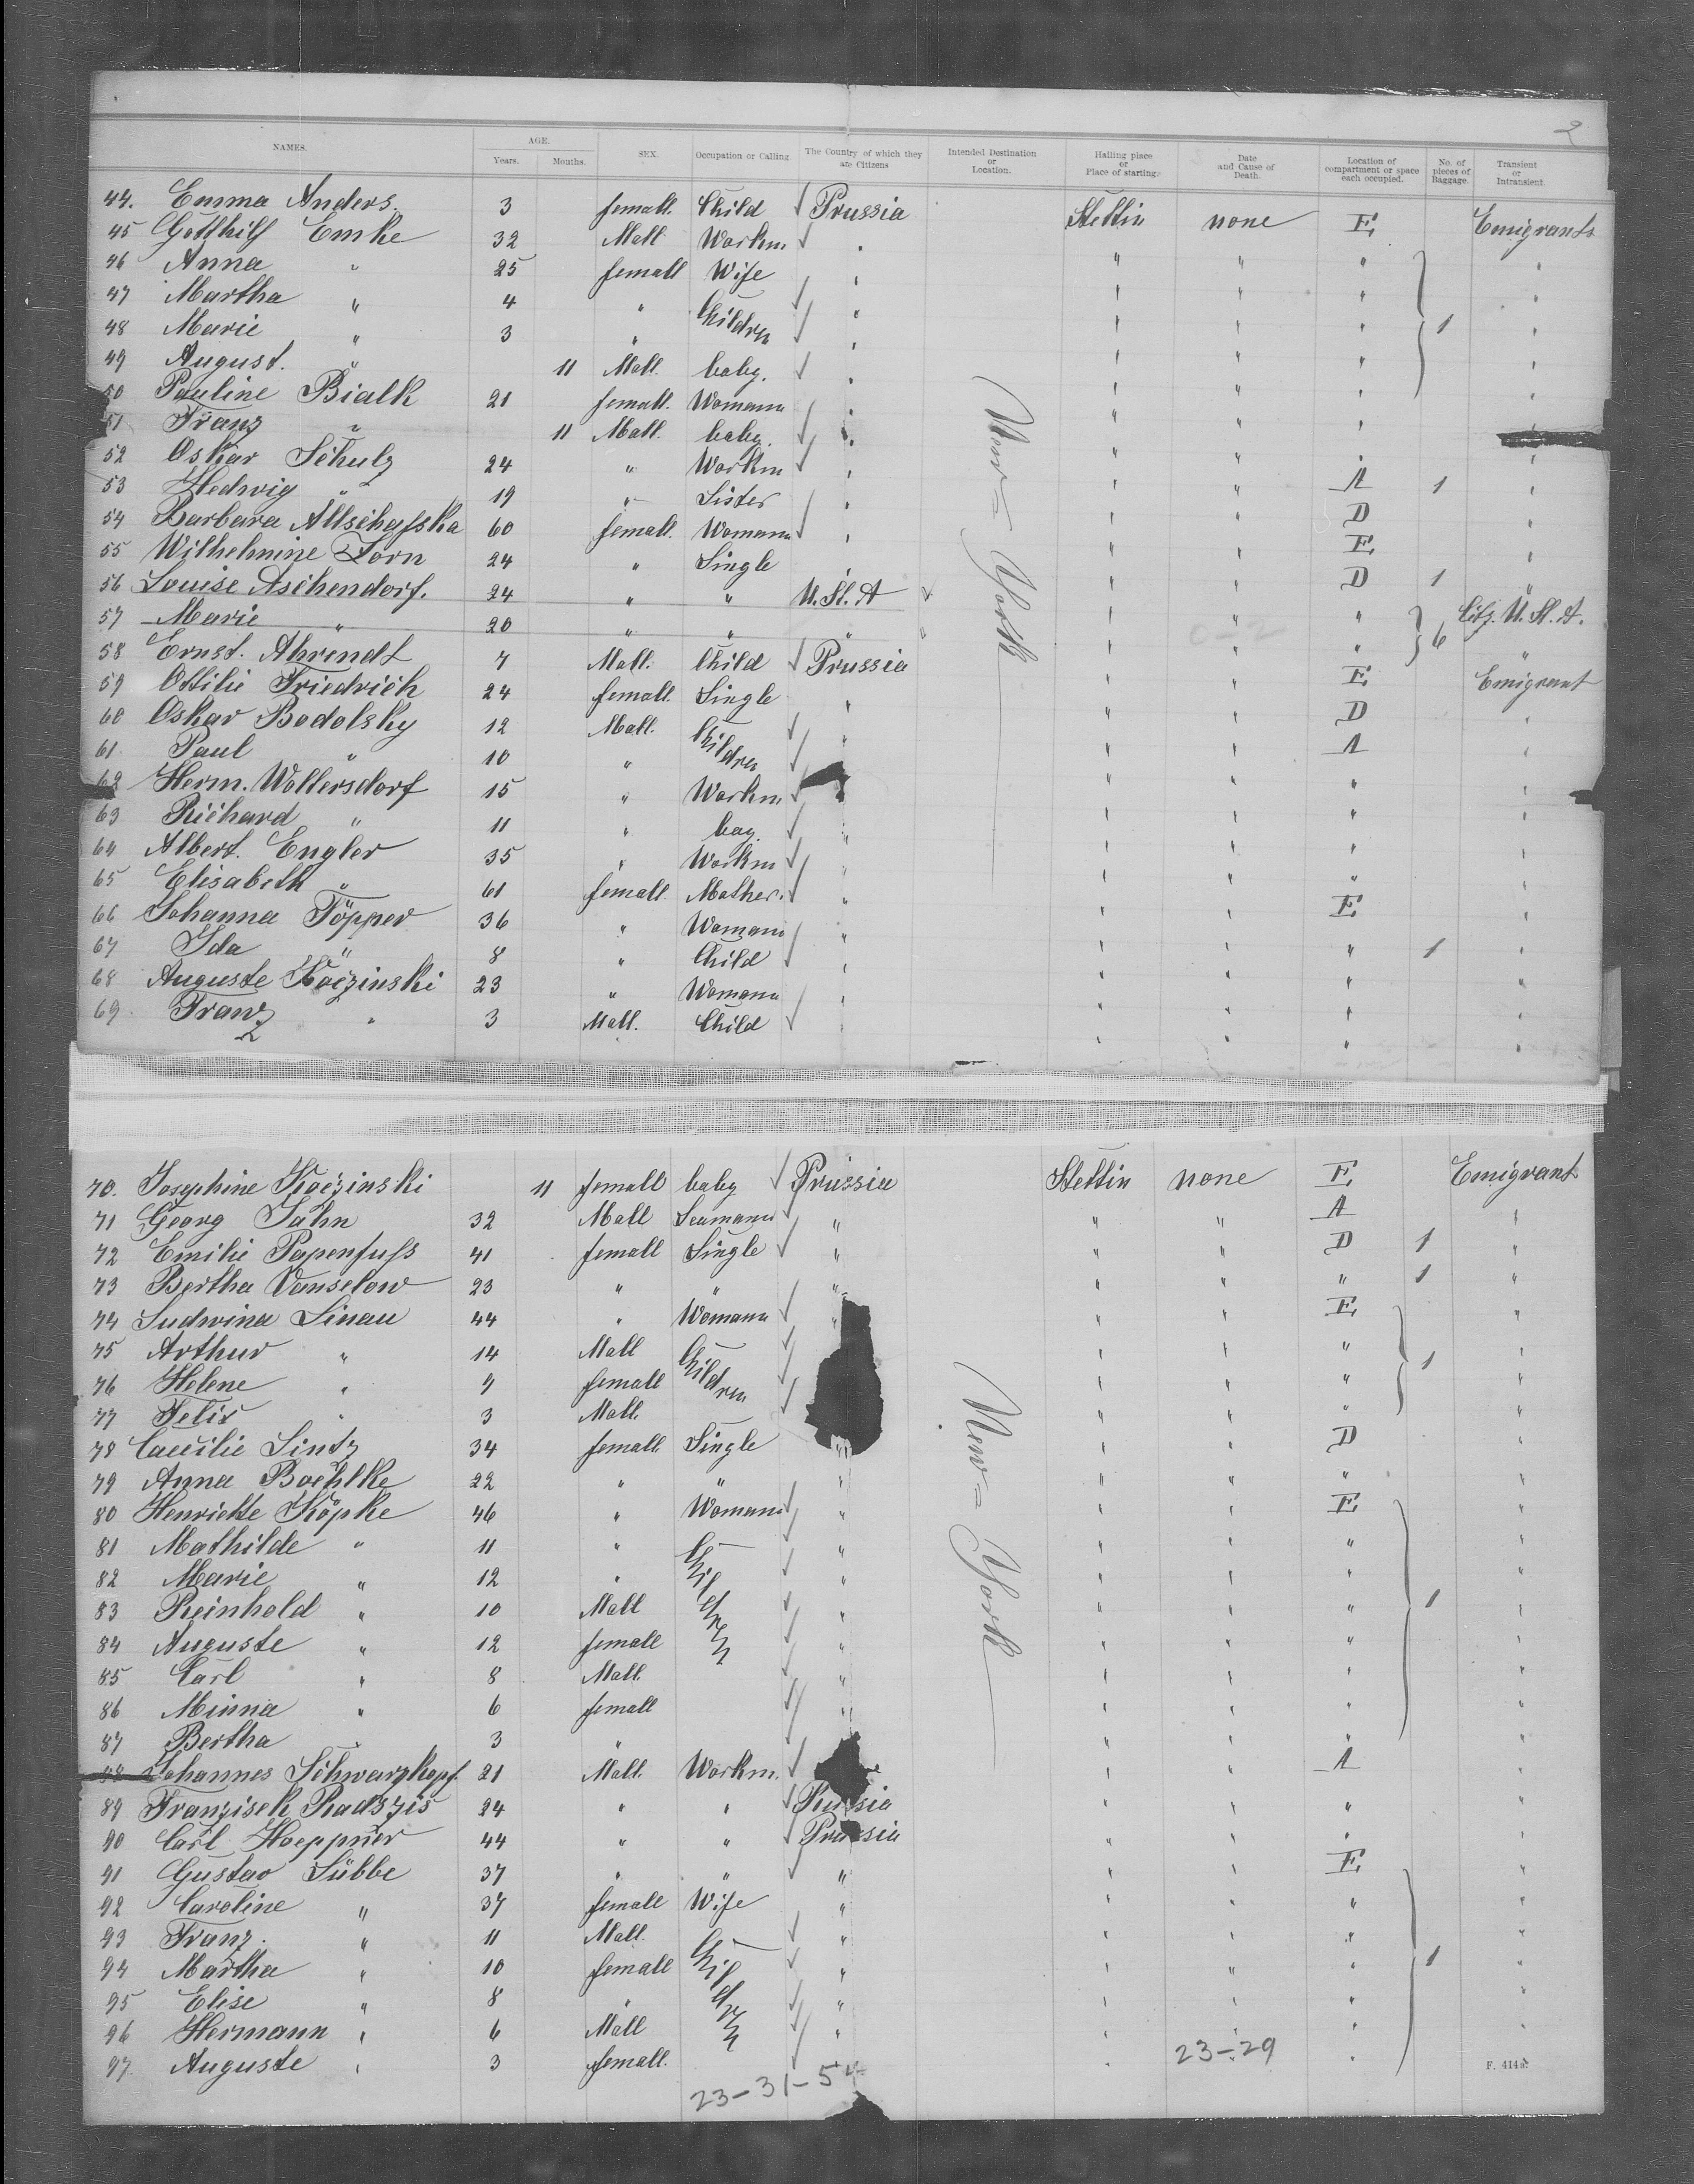 2
NAMES. AGE. Years. Months. SEX. Occupation or Calling. The Country of which they are Citizens Intended Destination or Location. Hailing place or Place of starting. Date and Cause of Death. Location of compartment or space each occupied. No. of pieces of Baggage. Transient or Intransient.
44. Emma Anders. 3 femall. Child Prussia Stettin none E Emigrants
45 Gotthilf Emke 32 Mall Workm. " " " " "
46 Anna " 25 femall Wife " " " " "
47 Martha " 4 " Children " " " " "
48 Marie " 3 " " " " " 1 "
49 August. " 11 Mall. baby. " " " " "
50 Pauline Bialk 21 femall. Womann " " " " "
51 Franz " 11 Mall. baby. " " " " "
52 Oskar Schulz 24 " Workm " " " A 1 "
53 Hedwig " 19 " Sister " " " D "
54 Barbara Allschafska 60 femall. Womann " " " E "
55 Wilhelmine Zorn 24 " Single " " " D 1 "
56 Louise Aschendorf. 24 " " U. St. A " " " Citz. U. St. A.
57 Marie " 20 " " " " " " 6 "
58 Ernst. Ahrendt 7 Mall. Child Prussia " " E Emigrant
59 Ottilie Friedrich 24 femall. Single " " " D "
60 Oskar Bodolsky 12 Mall. Children " " " A "
61 Paul " 10 " " " " " "
62 Herm. Wollersdorf 15 " Workm. " " " "
63 Richard " 11 " boy. " " " " "
64 Albert. Engler 35 " Workm " " " " "
65 Elisabeth " 61 femall Mother. " " " E "
66 Johanna Töpper 36 " Womann " " " " 1 "
67 Ida " 8 " Child " " " " "
68 Auguste Koczinski 23 " Womann " " " "
69. Franz " 3 Mall. Child " " " " "
New=York
70. Josephine Koczinski 11 femall baby Prussia Stettin none E Emigrants
71 Georg Jahn 32 Mall Seamann " " " A "
72 Emilie Papenfuss 41 femall Single " " " D 1 "
73 Bertha Vanselow 23 " " " " " " 1 "
74 Ludwina Linau 44 " Womann " " " E "
75 Arthur " 14 Mall Children " " " "
76 Helene " 9 femall " " " 1 "
77 Felix " 3 Mall. " " " "
78 Caecilie Lintz 34 femall Single " " " D "
79 Anna Boehlke 22 " " " " " " "
80 Henriette Köpke 46 " Womann " " " E "
81 Mathilde " 11 " Children " " " " "
82 Marie " 12 " " " " " "
83 Reinhold " 10 Mall " " " " 1 "
84 Auguste " 12 femall " " " " "
85 Carl " 8 Mall. " " " " "
86 Minna " 6 femall " " " " "
87 Bertha " 3 " " " " "
88 Johannes Schwarzkopf. 21 Mall. Workm. " " A "
89 Franzisek Radszis 24 " " Russia " " " "
90 Carl Hoeppner 44 " " Prussia " " " "
91 Gustav Lübbe 37 " " " " " E "
92 Caroline " 37 femall Wife " " " " "
93 Franz. " 11 Mall. Children " " " " "
94 Martha " 10 femall " " " " 1 "
95 Elise " 8 " " " " " "
96 Hermann " 6 Mall " " " " "
97. Auguste " 3 femall. " " "
New=York
23-29
23-31-54
F. 414a.